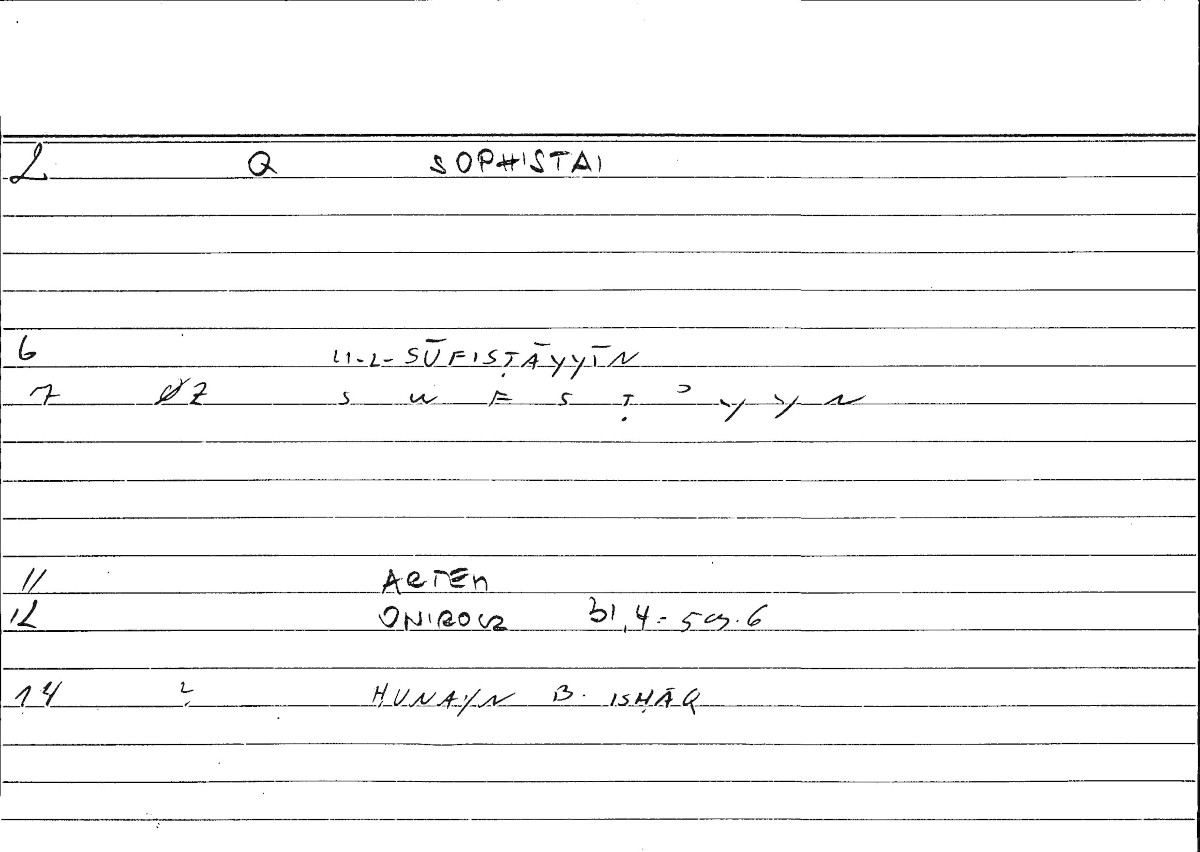 2 Q SOPHISTAI
6 LI-L-SŪFISṬĀYYĪN
7 ØZ S W F S Ṭ ʾ Y Y N
11 ARTEM
12 ONIROCR 31,4 =
14 ? ḤUNAYN B. ISḤĀQ